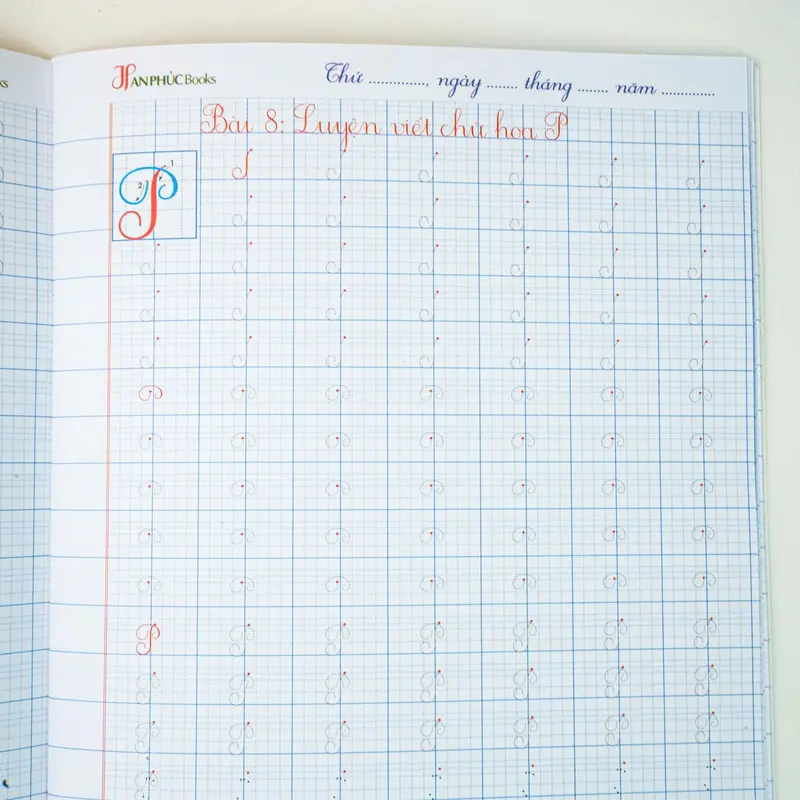 AN PHÚC Books
Thứ .............., ngày ........ tháng ........ năm ..............
Bài 8: Luyện viết chữ hoa P
P
1
2
P